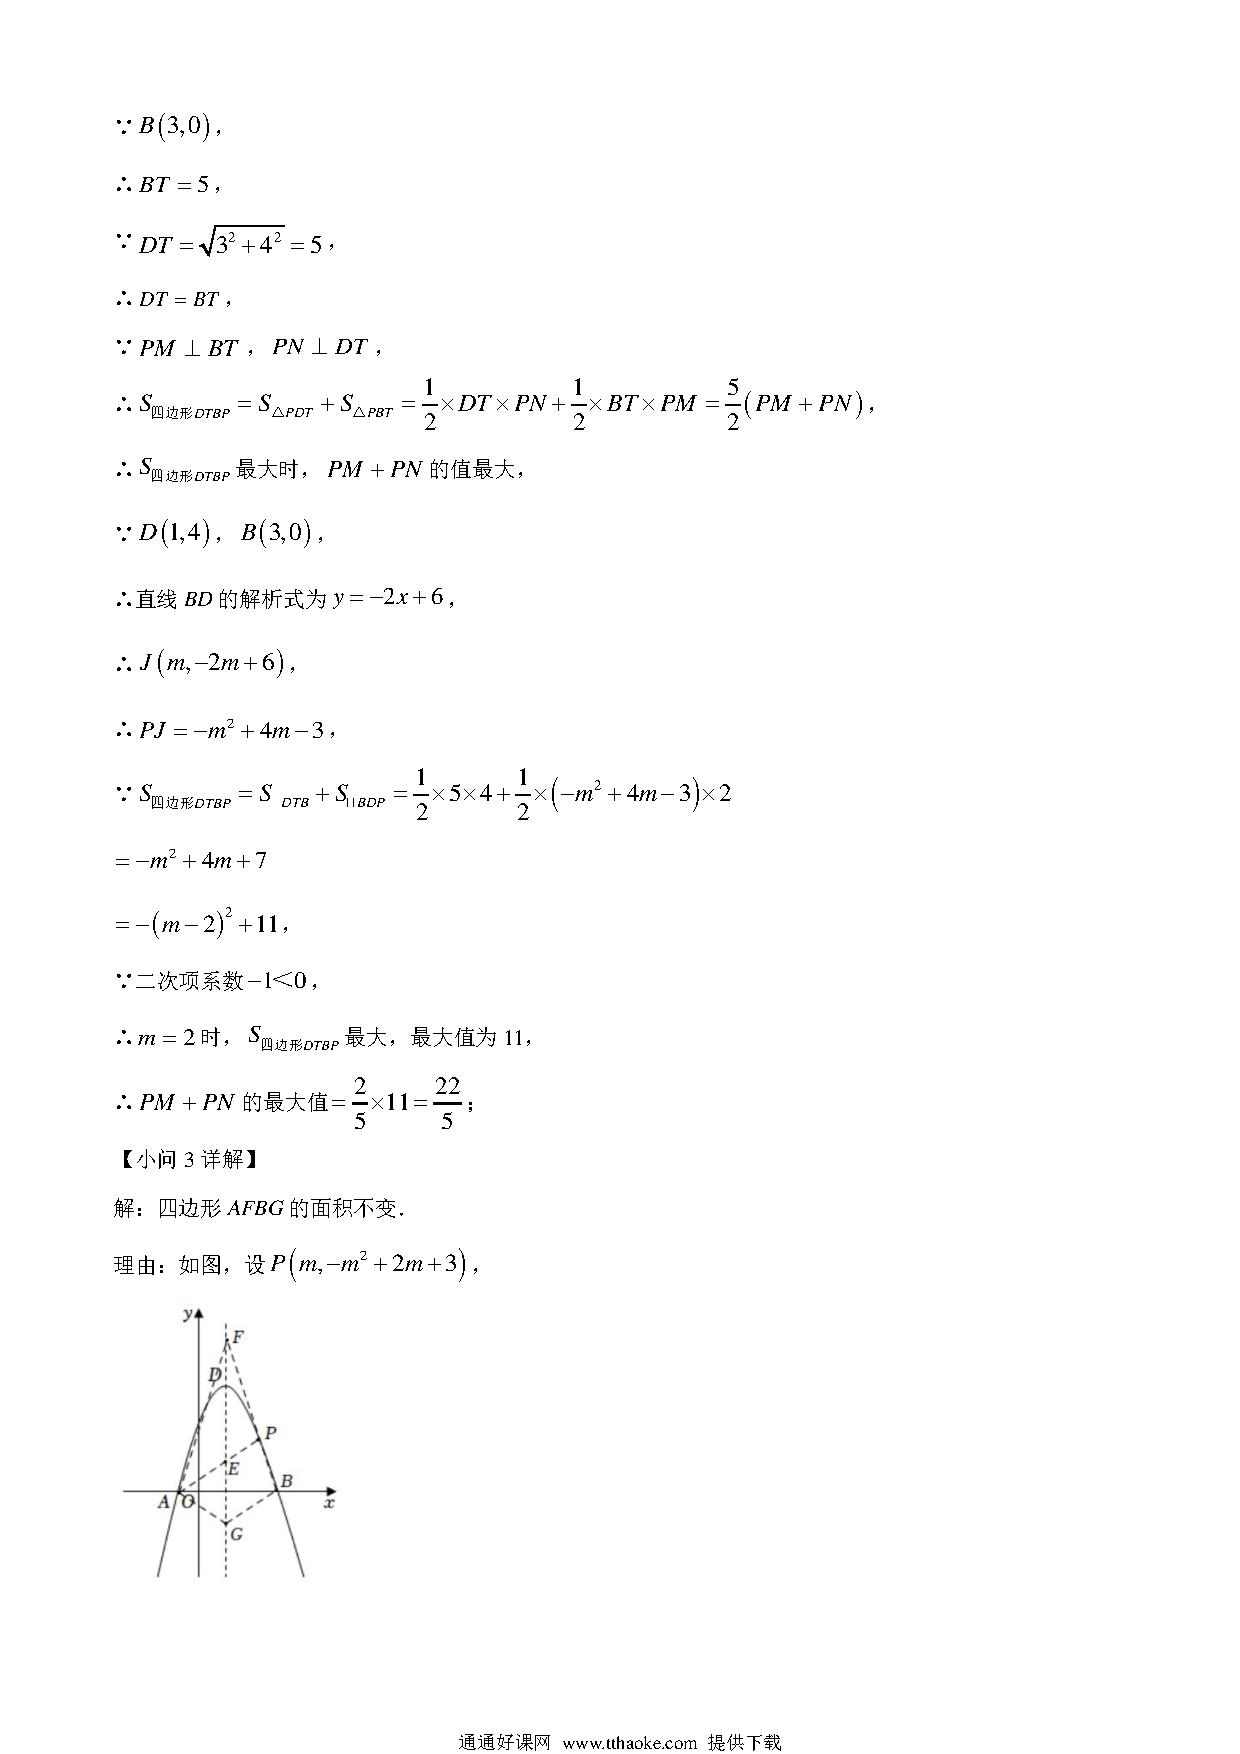 ∵B(3,0),
∴BT=5,
∵DT=√(3²+4²)=5,
∴DT=BT,
∵PM⊥BT，PN⊥DT，
∴S四边形DTBP=S△PDT+S△PBT=1/2×DT×PN+1/2×BT×PM=5/2(PM+PN),
∴S四边形DTBP最大时，PM+PN的值最大，
∵D(1,4)，B(3,0)，
∴直线BD的解析式为y=-2x+6，
∴J(m,-2m+6)，
∴PJ=-m²+4m-3，
∵S四边形DTBP=S DTB+S□BDP=1/2×5×4+1/2×(-m²+4m-3)×2
=-m²+4m+7
=-(m-2)²+11，
∵二次项系数-1<0，
∴m=2时，S四边形DTBP最大，最大值为11，
∴PM+PN的最大值=2/5×11=22/5；
【小问3详解】
解：四边形AFBG的面积不变．
理由：如图，设P(m,-m²+2m+3)，
y
F
D
P
E
B
A O x
G
通通好课网 www.tthaoke.com 提供下载